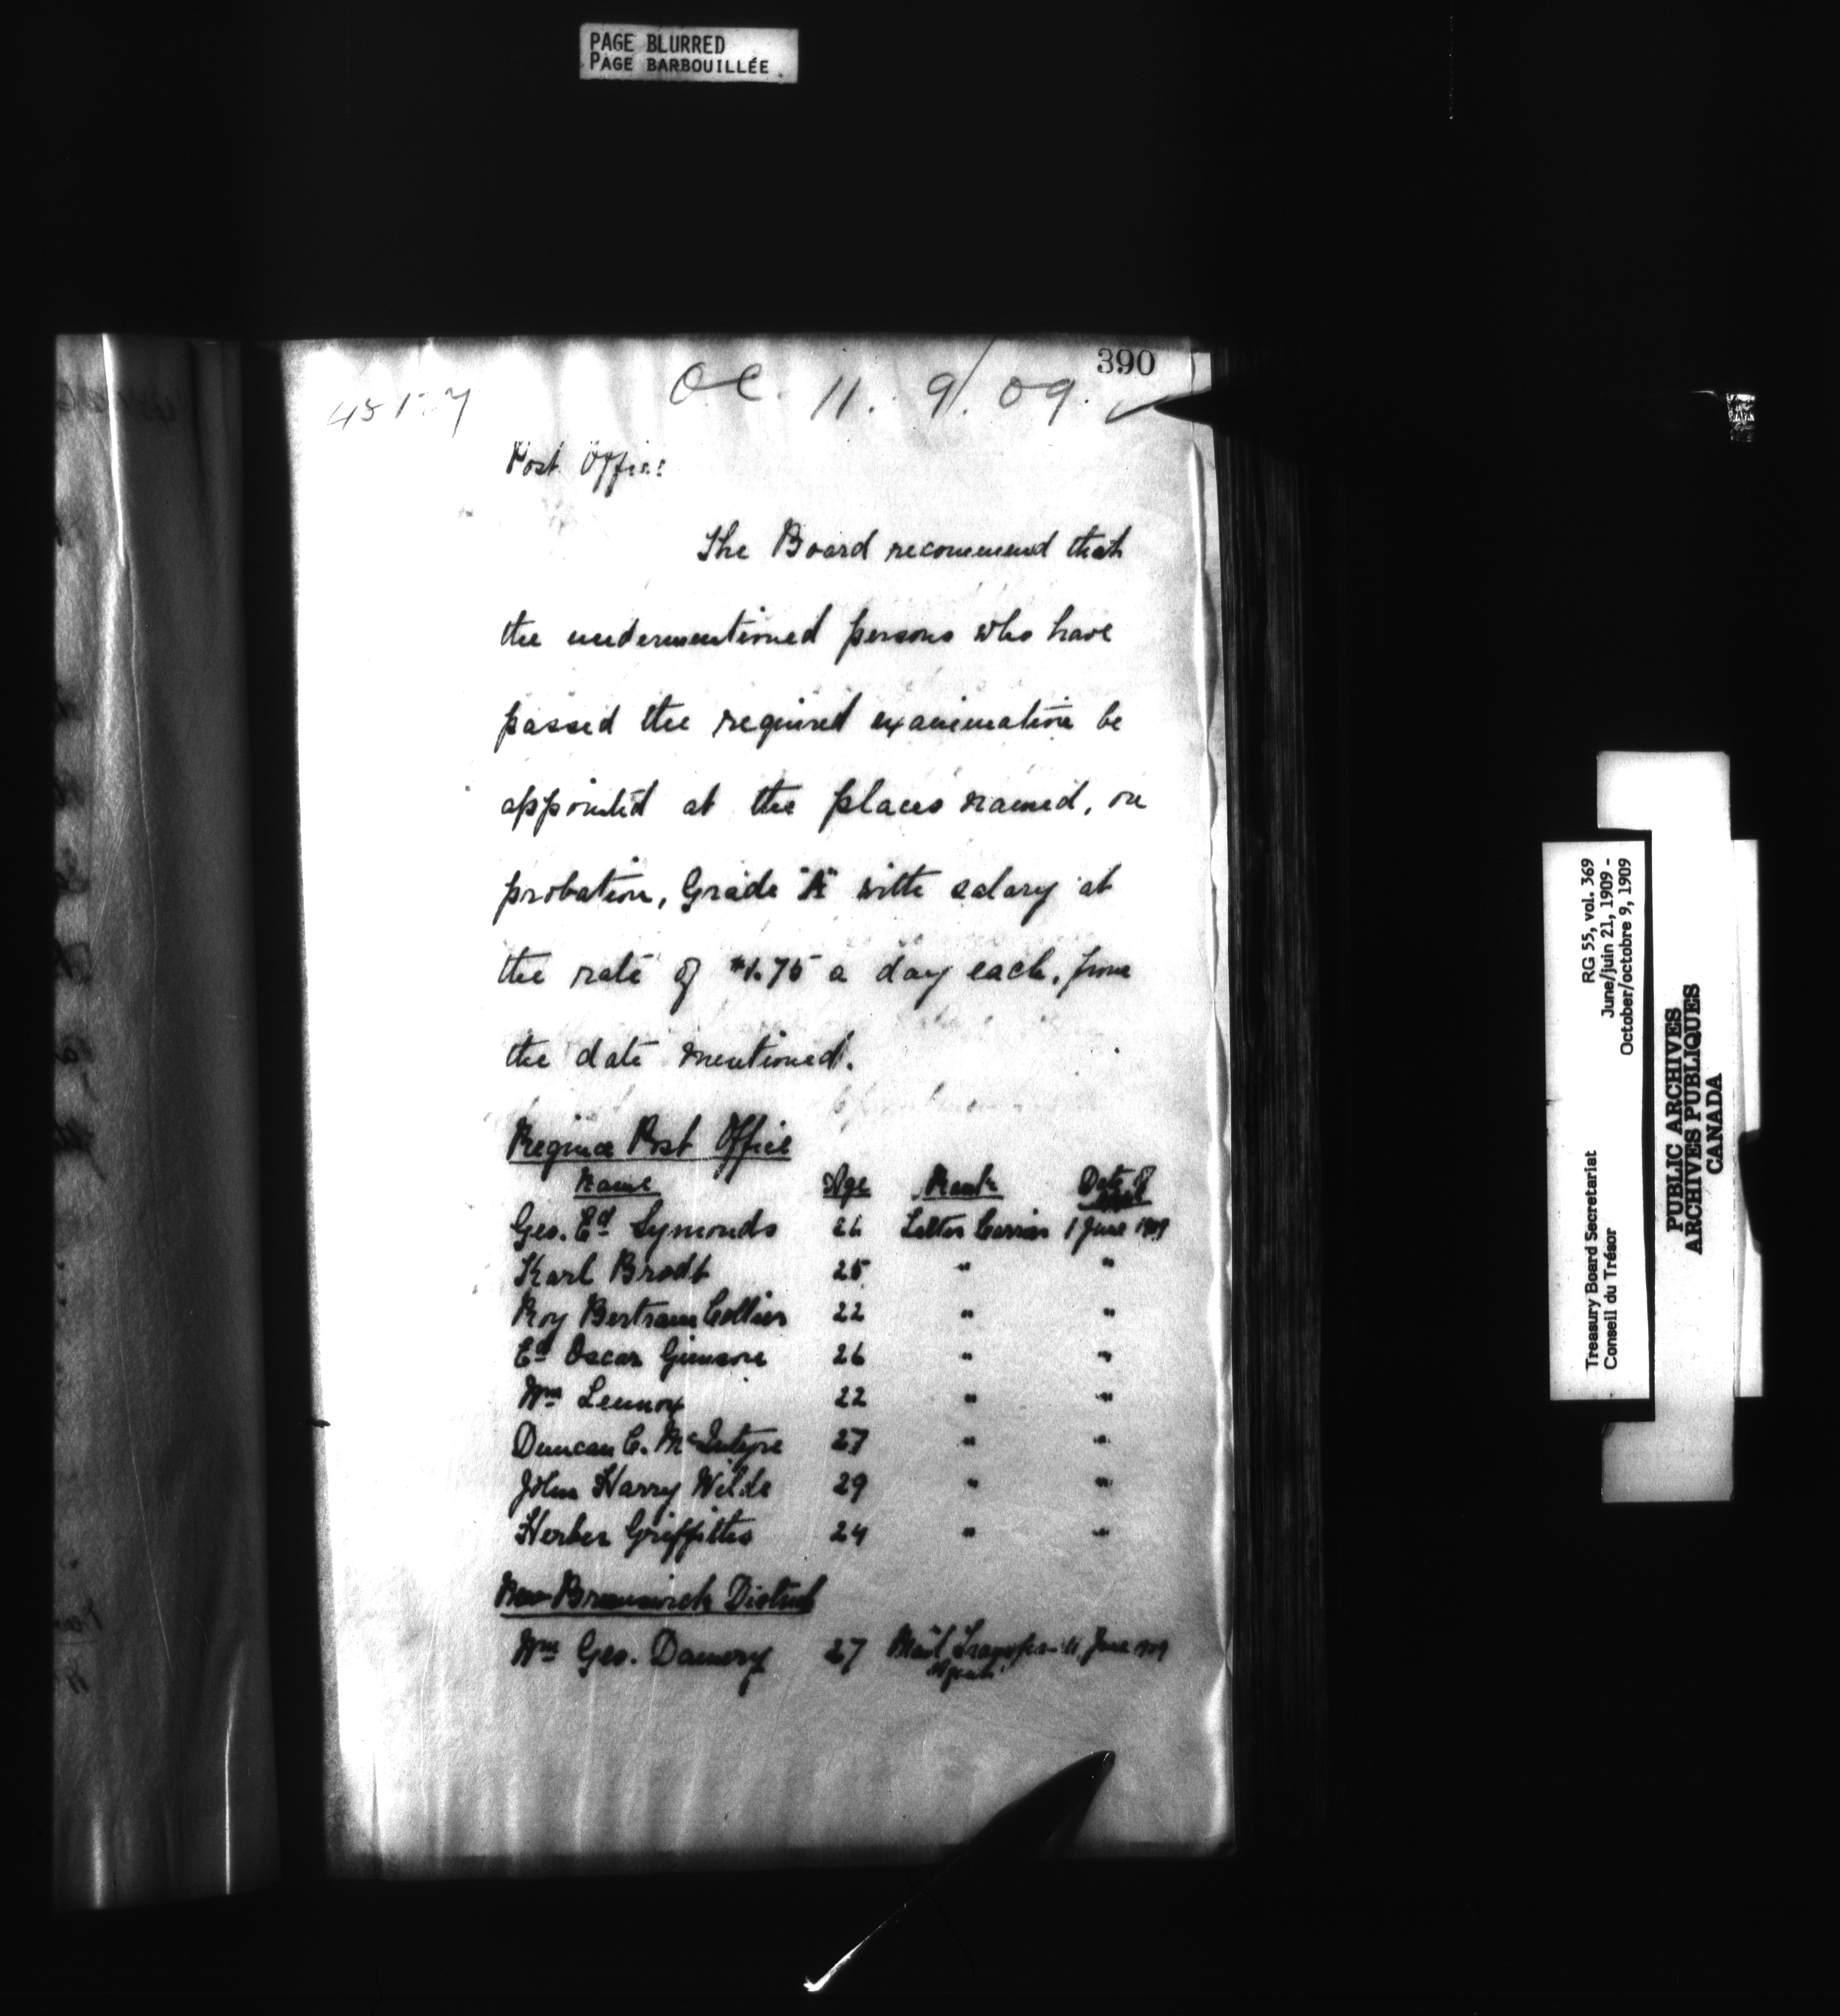 PAGE BLURRED
PAGE BARBOUILLÉE
390
O.C. 11. 9/09.
Post Office
The Board recommend that
the undermentioned persons who have
passed the required examination be
appointed at the places named, on
probation, Grade "A" with salary at
the rate of $1.75 a day each, from
the date mentioned.
Regina Post Office
Name Age Rank Date of
Geo. Ed Symonds 26 Letter Carrier 1 June 1909
Karl Brodt 25 " "
Roy Bertram Collier 22 " "
Ed Oscar 26 " "
Wm Lennox 22 " "
Duncan C. McIntyre 27 " "
John Harry Wilde 29 " "
Herber Griffiths 24 " "
New Brunswick District
Wm Geo. Damery 27 Mail Transfer 11 June 1909
Agent
RG 55, vol. 369
June/juin 21, 1909 -
October/octobre 9, 1909
Treasury Board Secretariat
Conseil du Trésor
PUBLIC ARCHIVES
ARCHIVES PUBLIQUES
CANADA